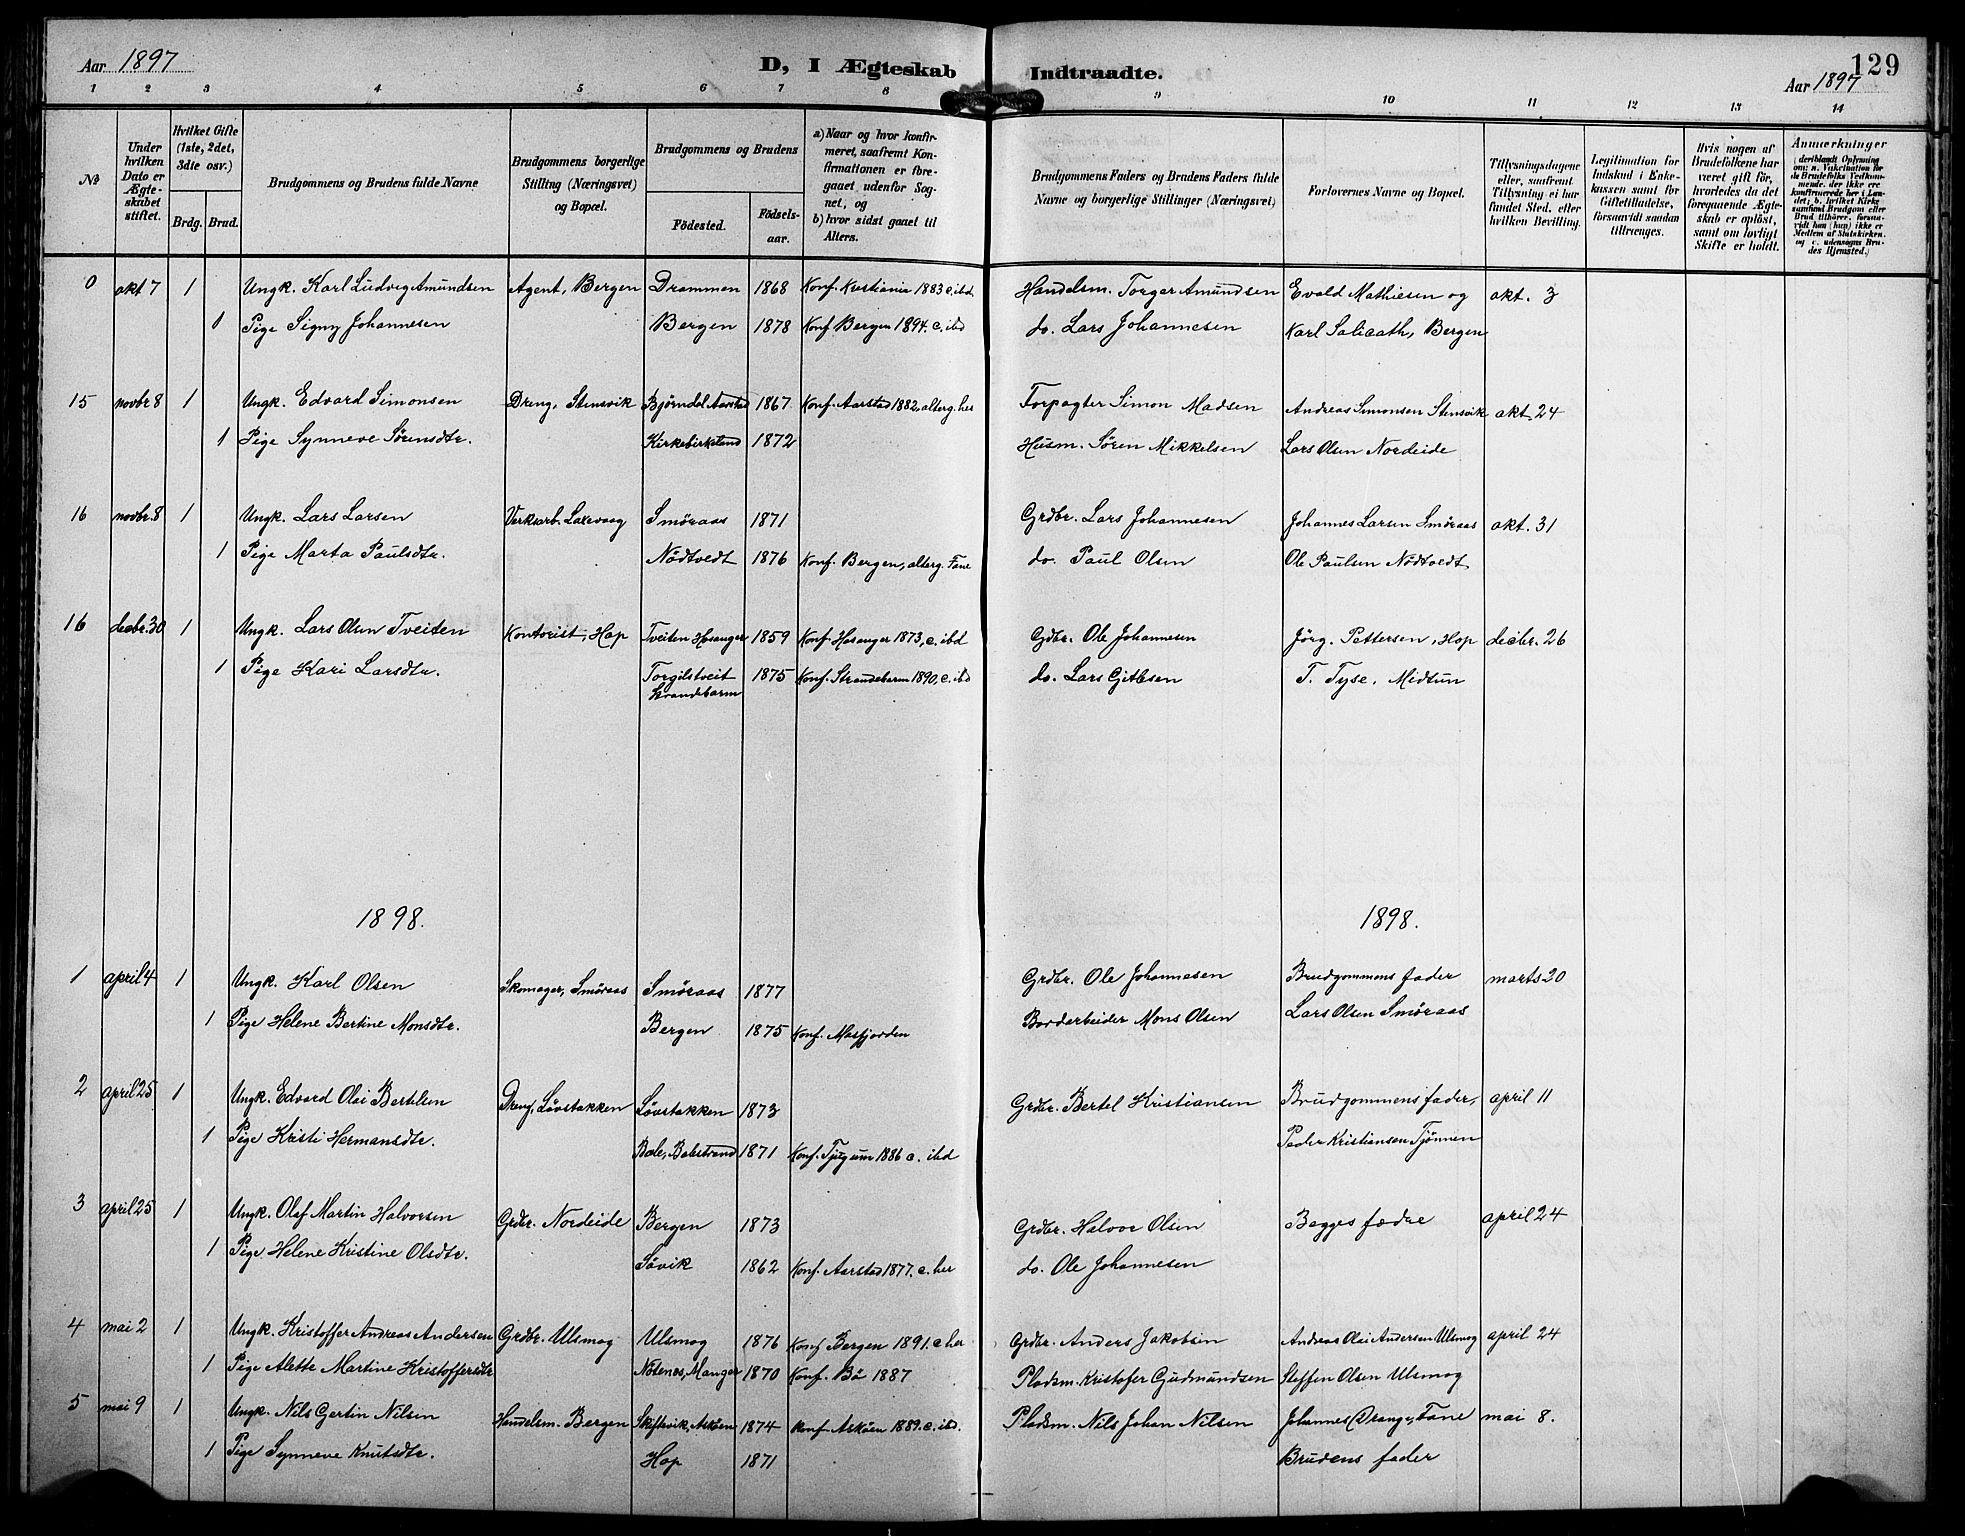 Aar 1897 D, I Ægteskab Indtraadte. 129
Aar 1897
1 2 3 4 5 6 7 8 9 10 11 12 13 14
№
Under hvilken Dato er Ægteskabet stiftet.
Hvilket Gifte (1ste, 2det, 3die osv.)
Brdg. Brud.
Brudgommens og Brudens fulde Navne
Brudgommens borgerlige Stilling (Næringsvei) og Bopæl.
Brudgommens og Brudens
Fødested. Fødsels-aar.
a) Naar og hvor konfirmeret, saafremt Konfirmationen er foregaaet udenfor Sognet, og
b) hvor sidst gaaet til Alters.
Brudgommens Faders og Brudens Faders fulde Navne og borgerlige Stillinger (Næringsvei)
Forlovernes Navne og Bopæl.
Tillysningsdagene eller, saafremt Tillysning ei har fundet Sted, efter hvilken Bevilling.
Legitimation for Indskud i Enkekassen samt for Giftetilladelse, forsaavidt saadan tiltrænges.
Hvis nogen af Brudefolkene har været gift før, hvorledes da det foregaaende Ægteskab er opløst, samt om lovligt Skifte er holdt.
Anmerkninger
(deriblandt Oplysning om: a. Vakcination for de Brudefolks Vedkommende, der ikke ere konfirmerede her i Landet; b. hvilket Kirkesamfund Brudgom eller Brud tilhører, forsavidt han (hun) ikke er Medlem af Statskirken, og c. udensogns Brudes Hjemsted.)
0 okt 7 1 Ungk. Karl Ludvig Amundsen Agent, Bergen Drammen 1868 Konf. Kristiania 1883 c. ibd Handelsm. Torger Amundsen Evald Mathiesen og okt. 3
1 Pige Signy Johannesen Bergen 1878 Konf Bergen 1894. c. ibd do. Lars Johannesen Karl Bergen
15 novbr 8 1 Ungk. Edvard Simonsen Dreng, Stensvik Bjørndal Aarstad 1867 Konf. Aarstad 1882, alterg. her Forpagter Simon Madsen Andreas Simonsen Stensvik okt. 24
1 Pige Synneve Sørensdtr. Kirkebirkeland 1872 Husm. Søren Mikkelsen Lars Olsen Nordeide
16 novbr. 8 1 Ungk. Lars Larsen Verksarb. Laxevaag Smøraas 1871 Grdbr. Lars Johannesen Johannes Larsen Smøraas okt. 31
1 Pige Marta Paulsdtr. Nødtvedt 1876 Konf. Bergen, alterg. Fane do. Paul Olsen Ole Paulsen Nødtvedt
16 decbr. 30 1 Ungk. Lars Olsen Tveiten Kontorist, Hop Tveiten Hosanger 1859 Konf. Hosanger 1873, c. ibd Gdbr. Ole Johannesen Jørg. Pettersen, Hop decbr. 26
1 Pige Kari Larsdtr. Torgilstveit Strandebarm 1875 Konf. Strandebarm 1890. c. ibd do. Lars Gitlesen T. Tyse, Midtun
1898. 1898.
1 april 4 1 Ungk. Karl Olsen Skomager, Smøraas Smøraas 1877 Grdbr. Ole Johannesen Brudgommens fader marts 20
1 Pige Helene Bertine Monsdtr. Bergen 1875 Konf. Masfjorden Bordarbeider Mons Olsen Lars Olsen Smøraas
2 april 25 1 Ungk. Edvard Olai Bertelsen Dreng, Løvstakken Løvstakken 1873 Grdbr. Bertel Kristiansen Brudgommens fader, april 11
1 Pige Kristi Hermansdtr. Bale, Balestrand 1871 Konf. Tjugum 1886 c. ibd Peder Kristiansen Tjønnen
3 april 25 1 Ungk. Olaf Martin Halvorsen Grdbr. Nordeide Bergen 1873 Grdbr. Halvor Olsen Begges fædre april 24
1 Pige Helene Kristine Olsdtr. Søvik 1862 Konf. Aarstad 1877. c. her do. Ole Johannesen
4 mai 2 1 Ungk. Kristoffer Andreas Andersen Grdbr. Ulsmog Ulsmog 1876 Konf Bergen 1891. c her Grdbr. Anders Jakobsen Andreas Olai Andersen Ulsmog april 24
1 Pige Alette Martine Kristoffersdtr Nøtenes, Manger 1870 Konf. Bø 1887 Pladsm. Kristofer Gudmundsen Steffen Olsen Ulsmog
5 mai 9 1 Ungk. Nils Gertin Nilsen Handelsm. Bergen Skiftesvik, Askøen 1874 Konf Askøen 1889. c. ibd. Pladsm. Nils Johan Nilsen Johannes Drange, Fane mai 8.
1 Pige Synneve Knutsdtr. Hop 1871 Brudens fader